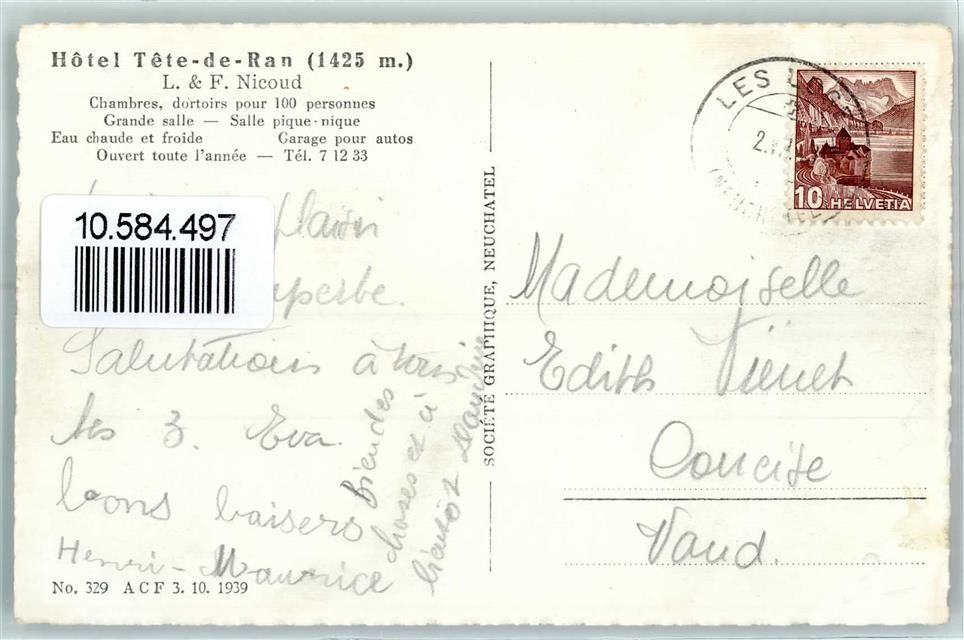 Hôtel Tête-de-Ran (1425 m.)
L. & F. Nicoud
Chambres, dortoirs pour 100 personnes
Grande salle — Salle pique-nique
Eau chaude et froide Garage pour autos
Ouvert toute l'année — Tél. 7 12 33
10.584.497
Salutations à tous
les 3. Eva
bons baisers
Henri-Maurice
Bien des
choses et à
bientôt
No. 329 A C F 3. 10. 1939
SOCIÉTÉ GRAPHIQUE, NEUCHATEL
LES
10 HELVETIA
Mademoiselle
Edith
Concise
Vaud.